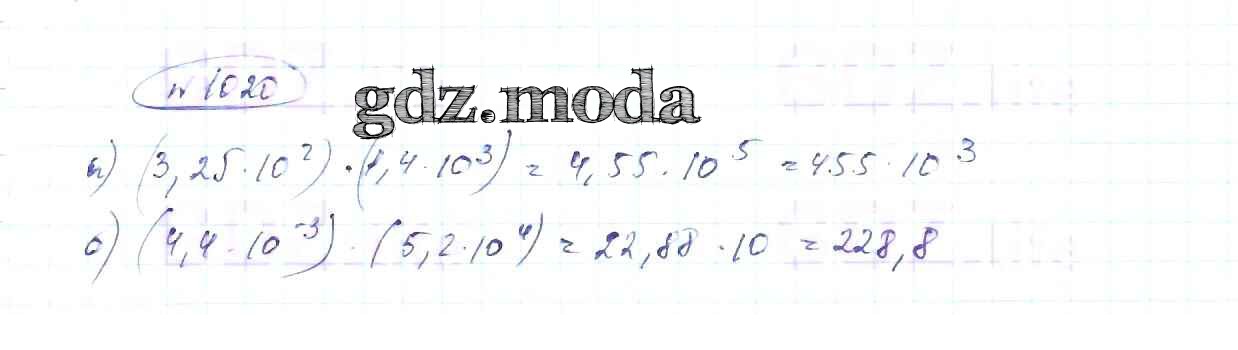 № 1020
gdz.moda
а) (3,25·10²)·(1,4·10³) = 4,55·10⁵ = 455·10³
б) (4,4·10⁻³)·(5,2·10⁴) = 22,88·10 = 228,8